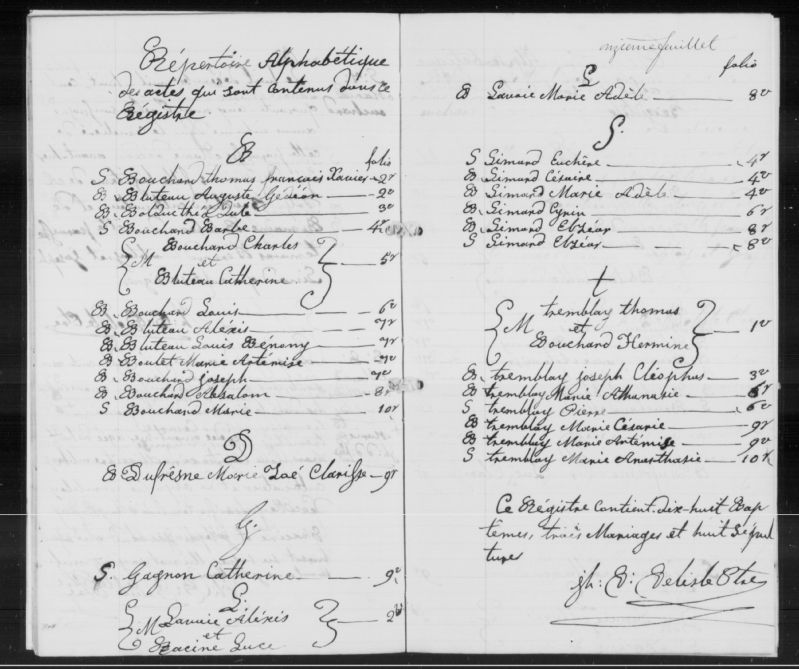 Répertoire Alphabétique
des actes qui sont Contenus dans ce
Régistre
B
folio
S Bouchard thomas françois Xavier — 2r
B Bluteau Auguste Gédéon — 2v
B Bolduc — 3v
S Bouchard Barbe — 4r
M Bouchard Charles
et — 5r
Bluteau Catherine
B Bouchard Louis — 6v
B Bluteau Alexis — 7r
B Bluteau Louis Bénony — 7r
B Boulet Marie Artémise — 7v
B Bouchard Joseph — 7v
B Bouchard Absalom — 8r
S Bouchard Marie — 10r
D
B Dufresne Marie Zoé Clarisse — 9r
G.
S. Gagnon Catherine — 9v
L.
M Lavoie Aléxis — 2v
et
Racine Luce
onzième feuillet
folio
L
B Lavoie Marie Adèle — 8v
S.
S Simard Euchère — 4r
B Simard Césaire — 4v
B Simard Marie Adèle — 4v
B Simard Cyrin — 6r
B Simard Elzéar — 8r
S Simard Elzéar — 8v
t
M tremblay thomas
et — 1v
Bouchard Hermine
B tremblay joseph Cléophas — 3v
B tremblay Marie Athanasie — 6r
S tremblay Pierre — 6v
B tremblay Marie Césarie — 9r
B tremblay Marie Artémise — 9v
S tremblay Marie Anasthasie — 10r
Ce Régistre Contient dix-huit Bap
temes, trois Mariages et huit Sépul
ture
jh: E: Delisle Ptre